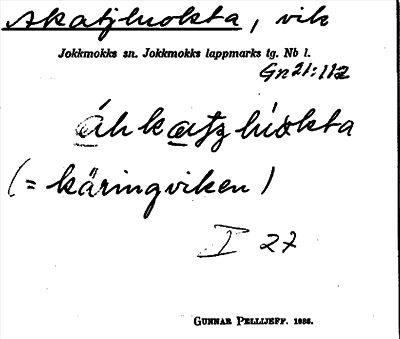 Akatjluokta, vik
Jokkmokks sn. Jokkmokks lappmarks tg. Nb l.
Gn 21:112
áhkatz lúokta
(= käringviken)
I 27
Gunnar Pellijeff. 1986.